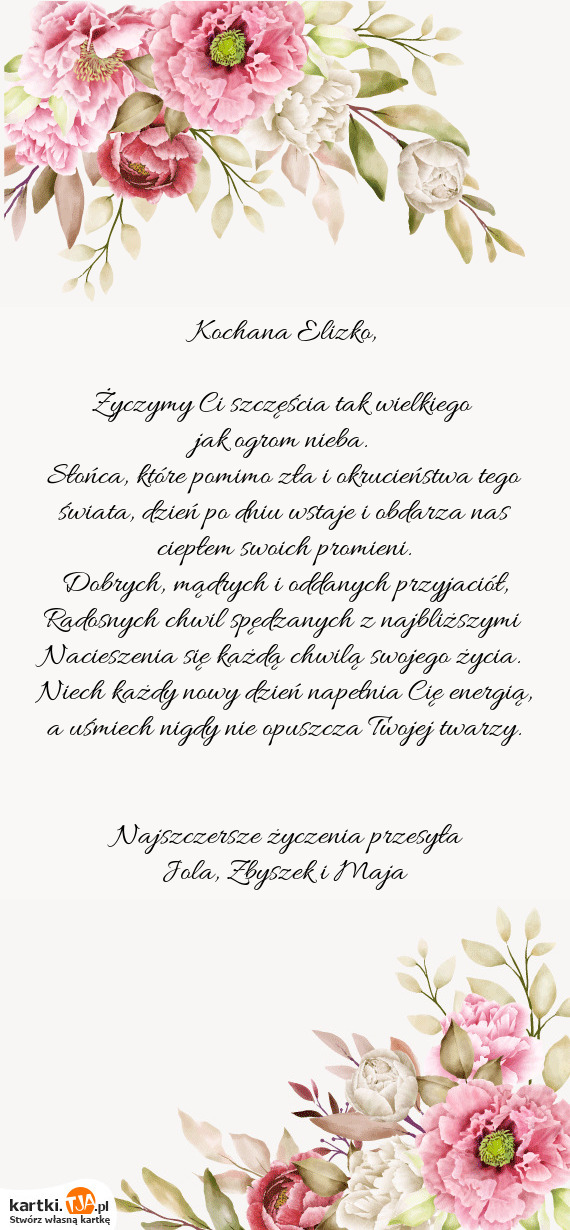 Kochana Elizko,
Życzymy Ci szczęścia tak wielkiego
jak ogrom nieba.
Słońca, które pomimo zła i okrucieństwa tego
świata, dzień po dniu wstaje i obdarza nas
ciepłem swoich promieni.
Dobrych, mądrych i oddanych przyjaciół,
Radosnych chwil spędzanych z najbliższymi
Nacieszenia się każdą chwilą swojego życia.
Niech każdy nowy dzień napełnia Cię energią,
a uśmiech nigdy nie opuszcza Twojej twarzy.
Najszczersze życzenia przesyła
Jola, Zbyszek i Maja
kartki.TJA.pl
Stwórz własną kartkę